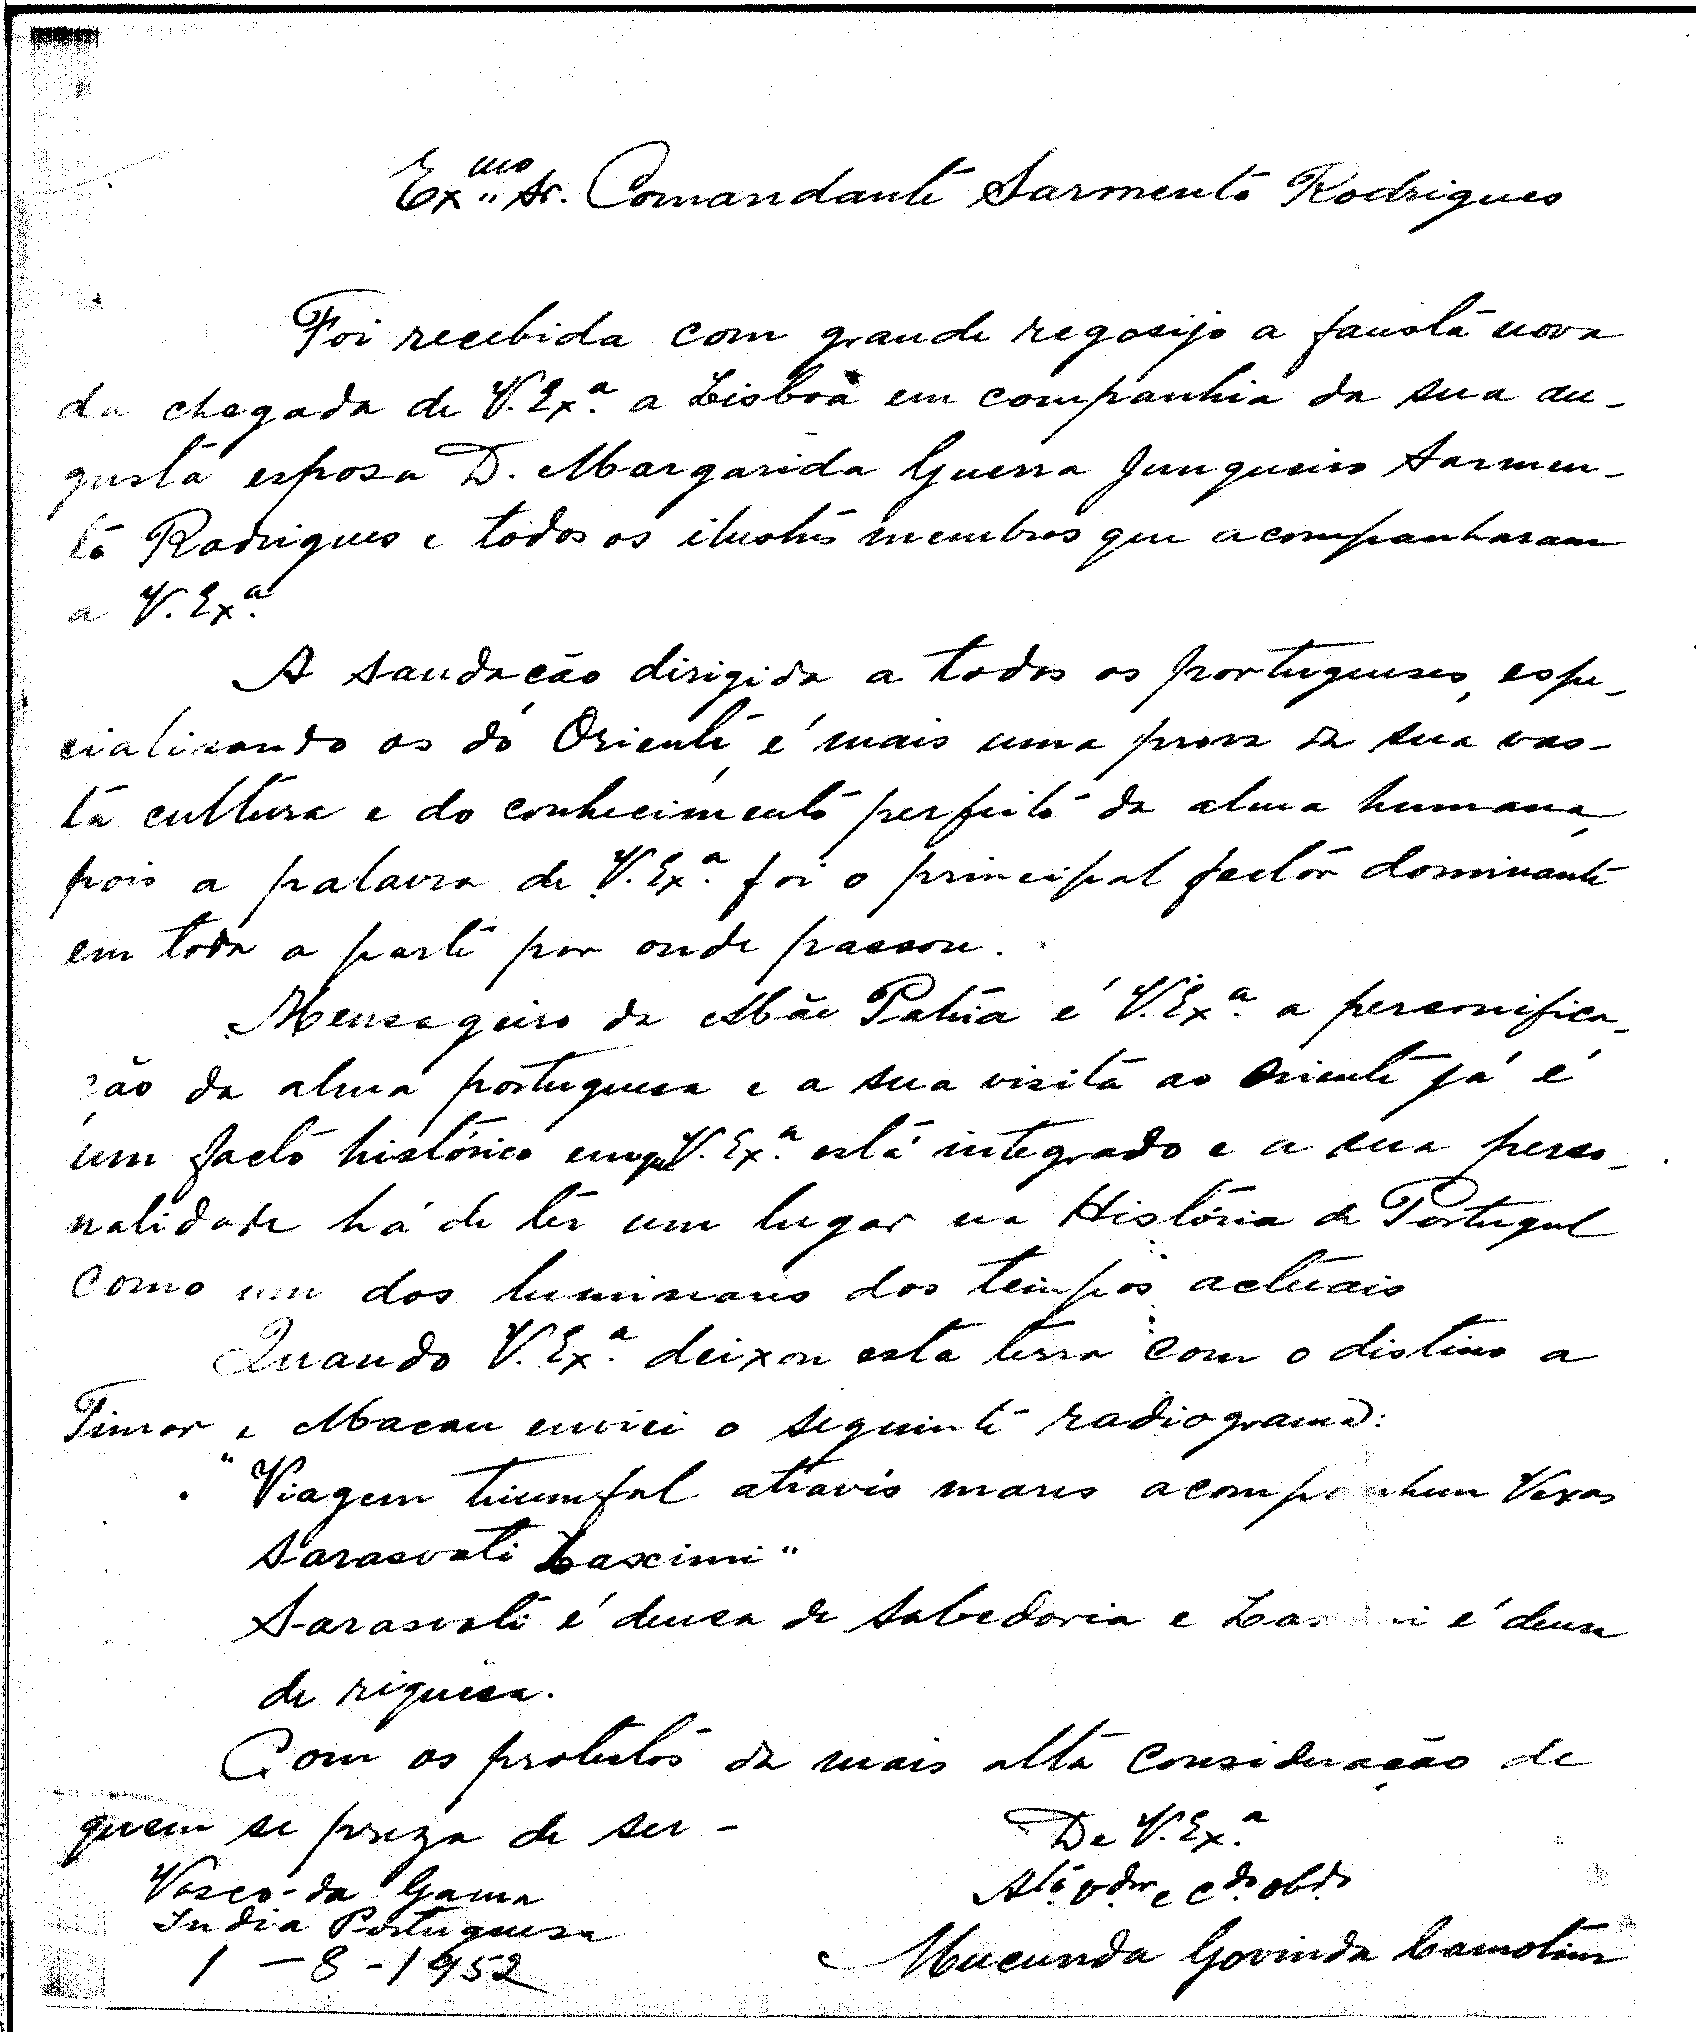 Exmo Sr. Comandante Sarmento Rodrigues
Foi recebida com grande regosijo a fausta nova
da chegada de V. Exa. a Lisboa em companhia da sua au-
gusta esposa D. Margarida Guerra Junqueiro Sarmen-
to Rodrigues e todos os ilustres membros que acompanharam
a V. Exa.
A saudação dirigida a todos os portugueses, espe-
cialisando os do Oriente, é mais uma prova da sua vas-
ta cultura e do conhecimento perfeito da alma humana,
pois a palavra de V. Exa. foi o principal factor dominante
em toda a parte por onde passou.
Mensageiro da Mãe Patria é V. Exa. a personifica-
ção da alma portuguesa e a sua visita ao Oriente já é
um facto histórico em que V. Exa. está integrado e a sua perso-
nalidade há de ter um lugar na História de Portugal
como um dos luminares dos tempos actuais
Quando V. Exa. deixou esta terra com o distino a
Timor e Macau enviei o seguinte radiograma:
"Viagem triumfal através mares acompanhem Vexas
Sarasvati Laxcimi"
Sarasvati é deusa de sabedoria e é deusa
de riquesa.
Com os protestos da mais alta consideração de
quem se preza de ser -
De V. Exa.
Ato. vdor. e cdo. obdo.
Vasco-da Gama
India Portuguesa
1 - 8 - 1952
Mucunda Govinda Camotim